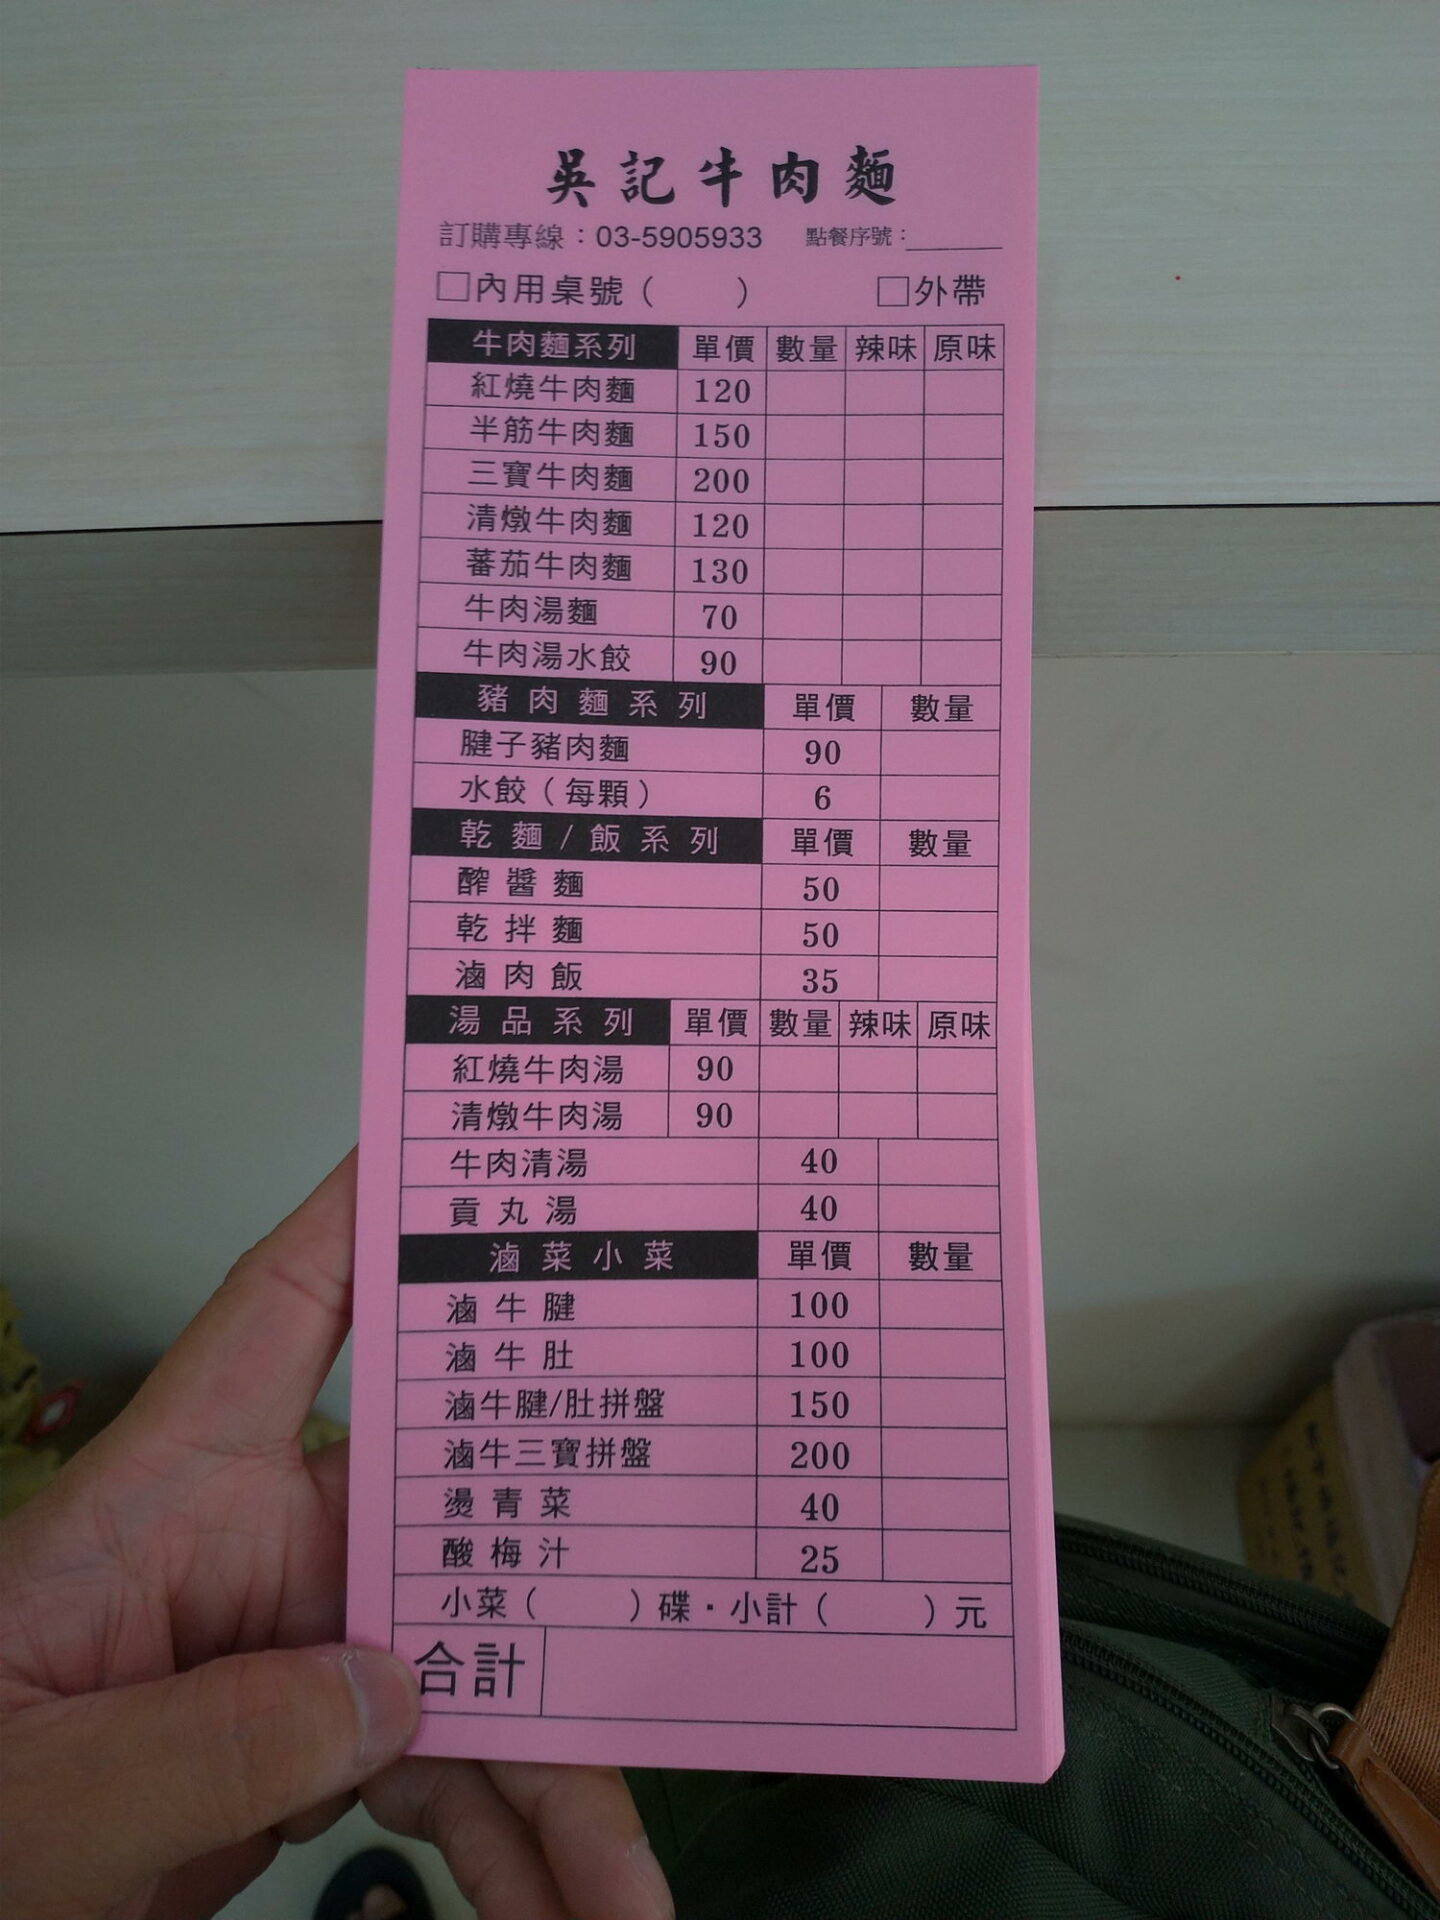 吳記牛肉麵
訂購專線：03-5905933 點餐序號：
□內用桌號（ ） □外帶
牛肉麵系列 單價 數量 辣味 原味
紅燒牛肉麵 120
半筋牛肉麵 150
三寶牛肉麵 200
清燉牛肉麵 120
蕃茄牛肉麵 130
牛肉湯麵 70
牛肉湯水餃 90
豬肉麵系列 單價 數量
腱子豬肉麵 90
水餃（每顆） 6
乾麵/飯系列 單價 數量
醡醬麵 50
乾拌麵 50
滷肉飯 35
湯品系列 單價 數量 辣味 原味
紅燒牛肉湯 90
清燉牛肉湯 90
牛肉清湯 40
貢丸湯 40
滷菜小菜 單價 數量
滷牛腱 100
滷牛肚 100
滷牛腱/肚拼盤 150
滷牛三寶拼盤 200
燙青菜 40
酸梅汁 25
小菜（ ）碟・小計（ ）元
合計